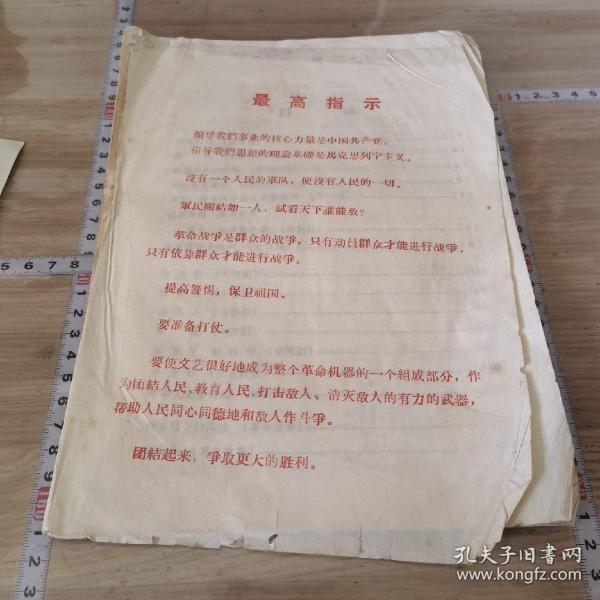 最高指示
領导我們事业的核心力量是中国共产党。
指导我們思想的理論基礎是馬克思列宁主义。
沒有一个人民的軍队，便沒有人民的一切。
軍民團結如一人，試看天下誰能敌？
革命战爭是群众的战爭，只有动員群众才能进行战爭，
只有依靠群众才能进行战爭。
提高警惕，保卫祖国。
要准备打仗。
要使文艺很好地成为整个革命机器的一个組成部分，作
为团結人民、教育人民、打击敌人、消灭敌人的有力的武器，
帮助人民同心同德地和敌人作斗爭。
团結起来，爭取更大的胜利。
孔夫子旧书网
www.kongfz.com